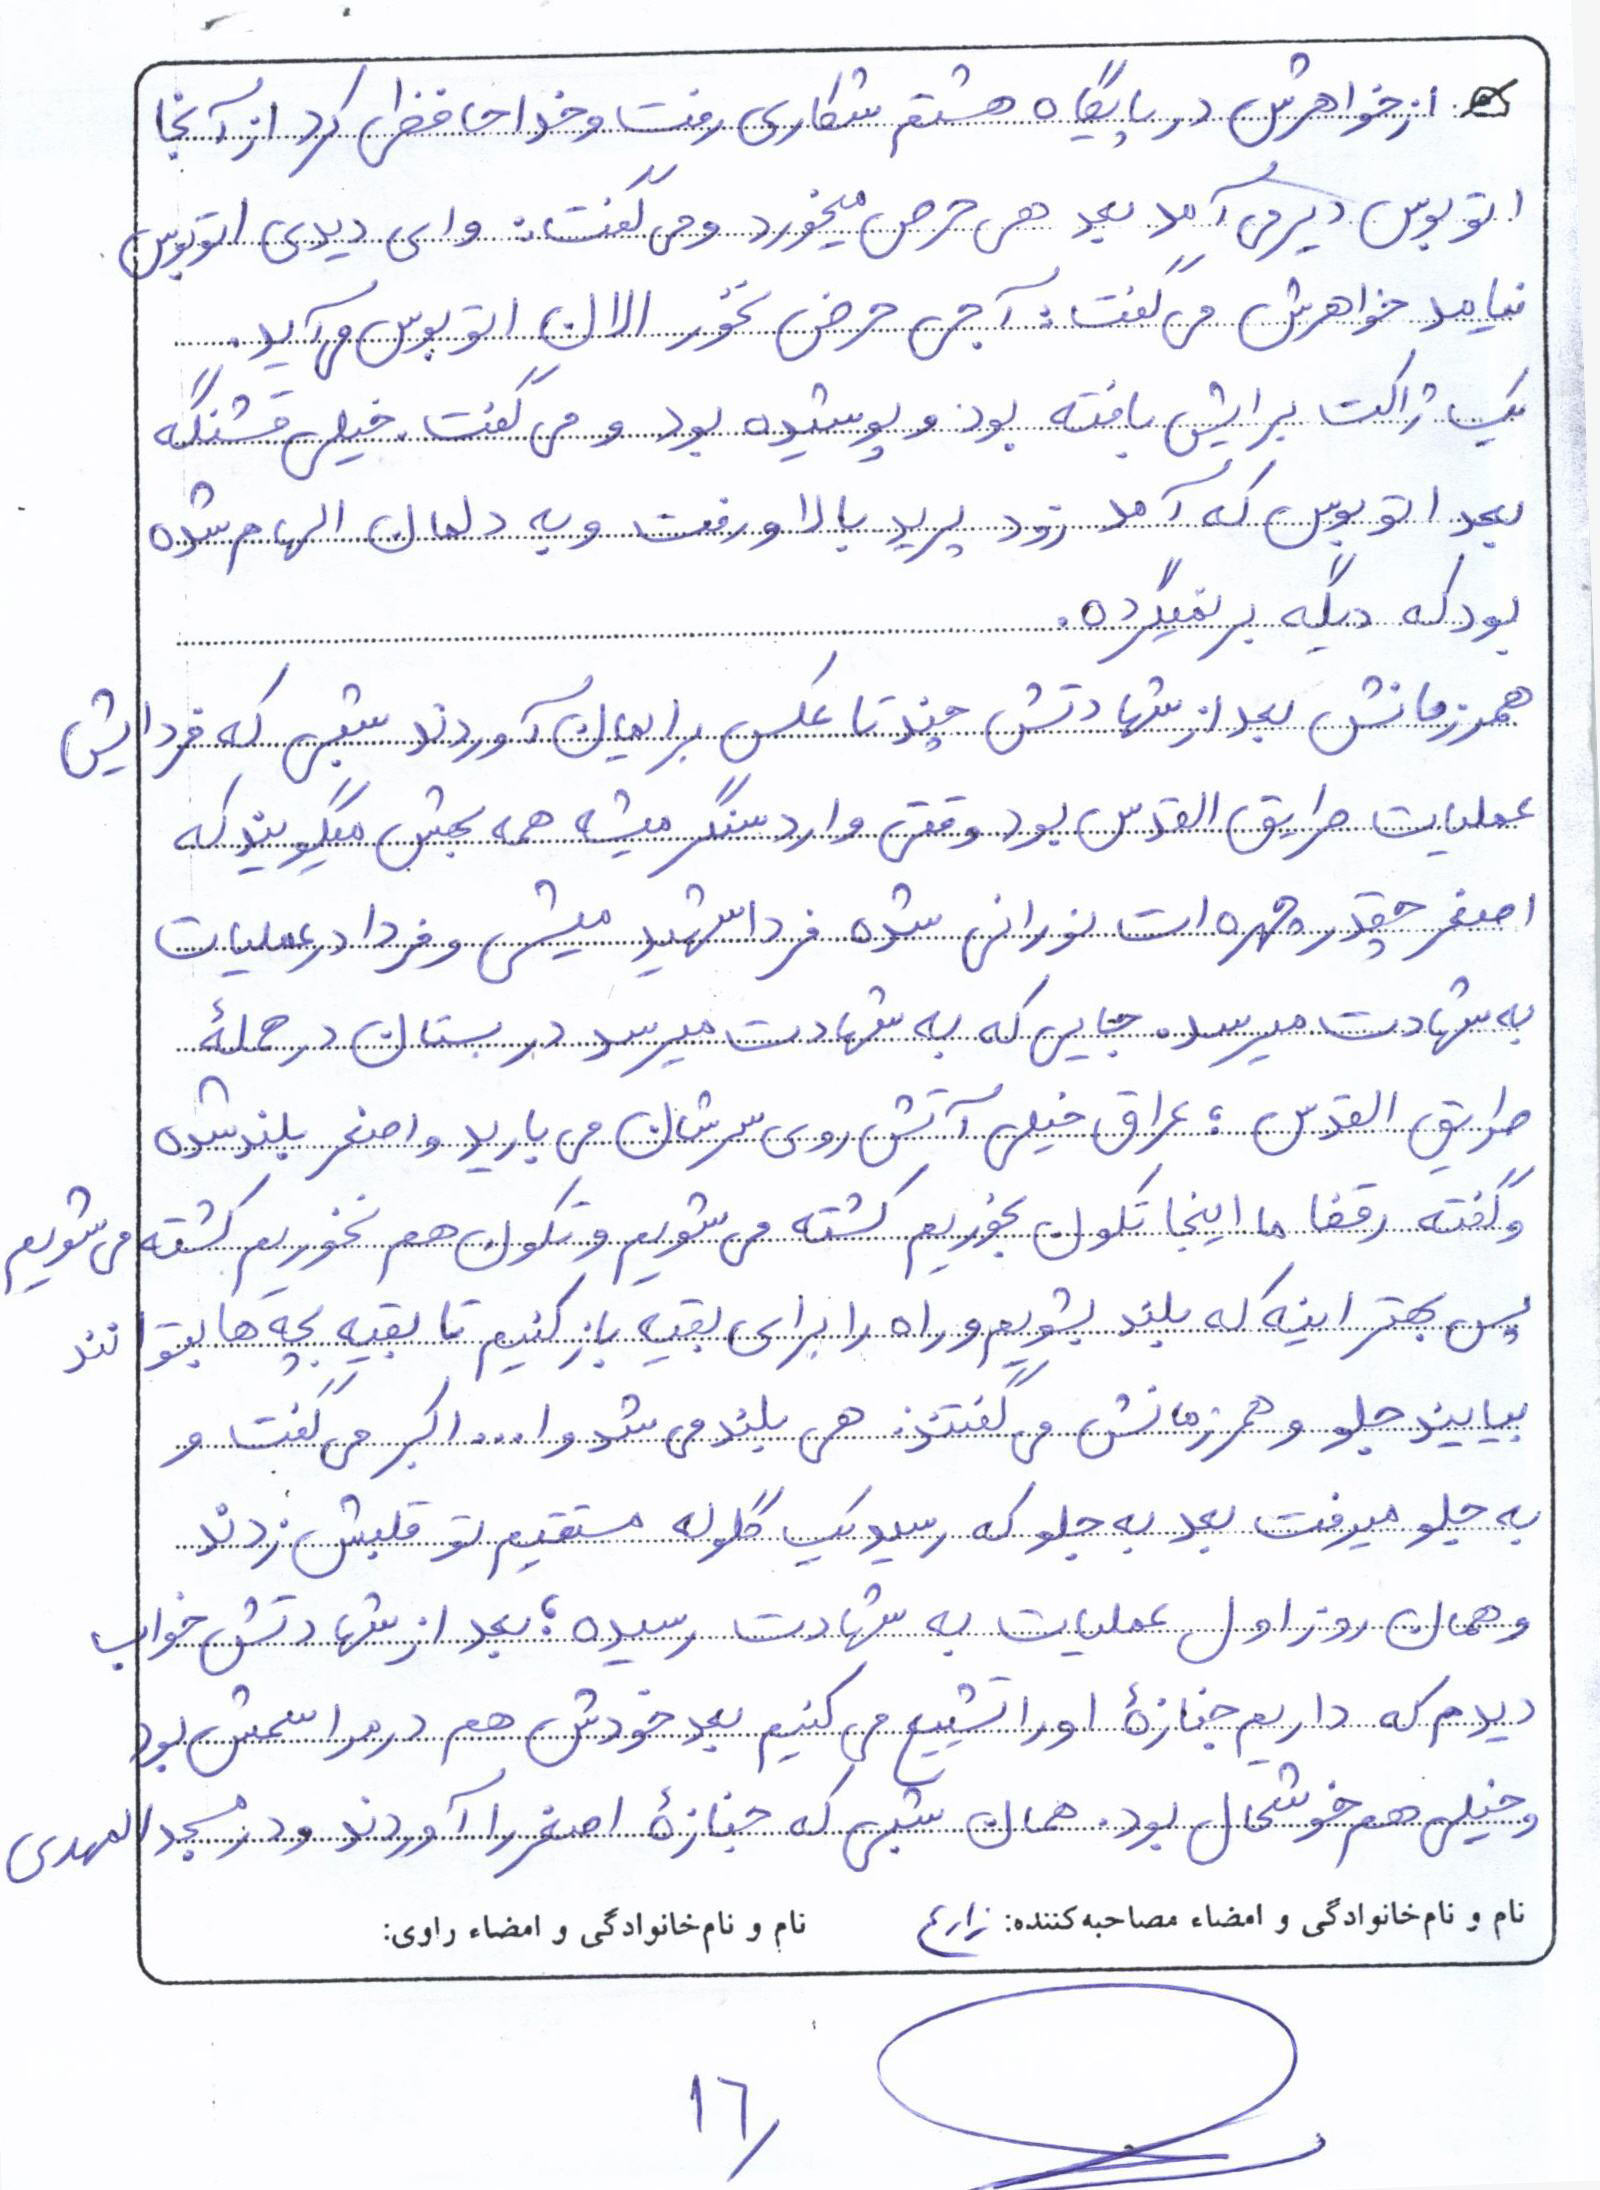 از خواهرش در پایگاه هشتم شکاری رفت و خداحافظی کرد از آنجا
اتوبوس دیر می آمد بعد هی حرص میخورد و می گفت: وای دیدی اتوبوس
نیامد خواهرش می گفت: آجی حرص نخور الان اتوبوس می آید.
یک ژاکت برایش بافته بود و پوشیده بود و می گفت. خیلی قشنگه
بعد اتوبوس که آمد زود پرید بالا و رفت و به دلمان الهام شده
بود که دیگه برنمیگرده.
همرزمانش بعد از شهادتش چندتا عکس برایمان آوردند شبی که فردایش
عملیات طریق القدس بود وقتی وارد سنگر میشه همه بهش میگویند که
اصغر چقدر چهره ات نورانی شده فردا شهید میشی و فردا در عملیات
به شهادت میرسد. جایی که به شهادت میرسد در بستان در حملهٔ
طریق القدس؛ عراق خیلی آتش روی سرشان می بارید و اصغر بلند شده
و گفته رفقا ما اینجا تکون بخوریم کشته می شویم و تکون هم نخوریم کشته می شویم
پس بهتر اینه که بلند بشویم و راه را برای بقیه باز کنیم تا بقیه بچه ها بتوانند
بیایند جلو و همرزمانش می گفتند: هی بلند می شد و ا... اکبر می گفت و
به جلو میرفت بعد به جلو که رسید یک گلوله مستقیم تو قلبش زدند
و همان روز اول عملیات به شهادت رسیده؛ بعد از شهادتش خواب
دیدم که داریم جنازهٔ او را تشییع می کنیم بعد خودش هم در مراسمش بود
و خیلی هم خوشحال بود. همان شبی که جنازهٔ اصغر را آوردند و در مسجد المهدی
نام و نام خانوادگی و امضاء مصاحبه کننده: زارع نام و نام خانوادگی و امضاء راوی:
۱۶/